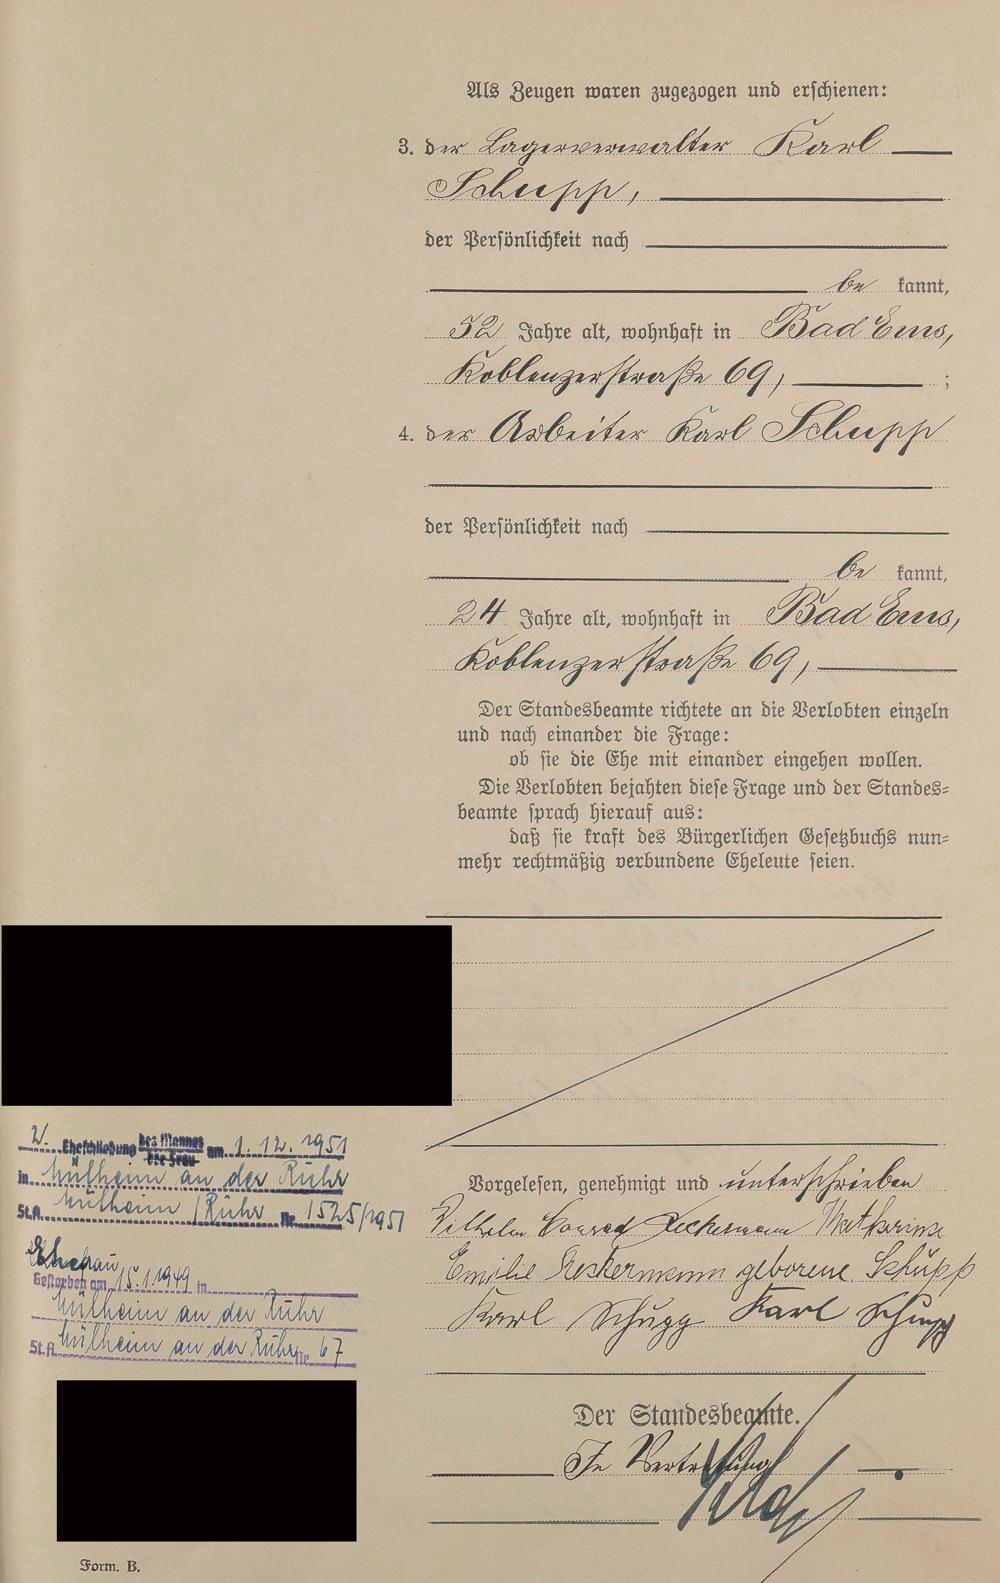 Als Zeugen waren zugezogen und erschienen:
3. der Lagerverwalter Karl
Schupp,
der Persönlichkeit nach
be kannt,
52 Jahre alt, wohnhaft in Bad Ems,
Koblenzerstraße 69, ;
4. der Arbeiter Karl Schupp
der Persönlichkeit nach
be kannt,
24 Jahre alt, wohnhaft in Bad Ems,
Koblenzerstraße 69,
Der Standesbeamte richtete an die Verlobten einzeln
und nach einander die Frage:
ob sie die Ehe mit einander eingehen wollen.
Die Verlobten bejahten diese Frage und der Standes=
beamte sprach hierauf aus:
daß sie kraft des Bürgerlichen Gesetzbuchs nun=
mehr rechtmäßig verbundene Eheleute seien.
Vorgelesen, genehmigt und unterschrieben
Wilhelm Conrad Katharina
Emilie geborene Schupp
Karl Schupp Karl Schupp
Der Standesbeamte.
In Vertretung
2. Eheschließung des Mannes der Frau am 1.12.1951
in Mülheim an der Ruhr
St.A. Mülheim /Ruhr Nr. 1525/1951
Ehefrau
Gestorben am 15.1.1949 in
Mülheim an der Ruhr
St.A. Mülheim an der Ruhr Nr. 67
Form. B.